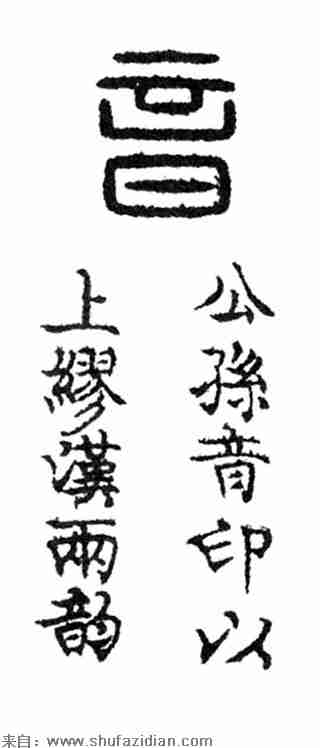 音
公孫音印以
上繆漢兩韵
来自：www.shufazidian.com